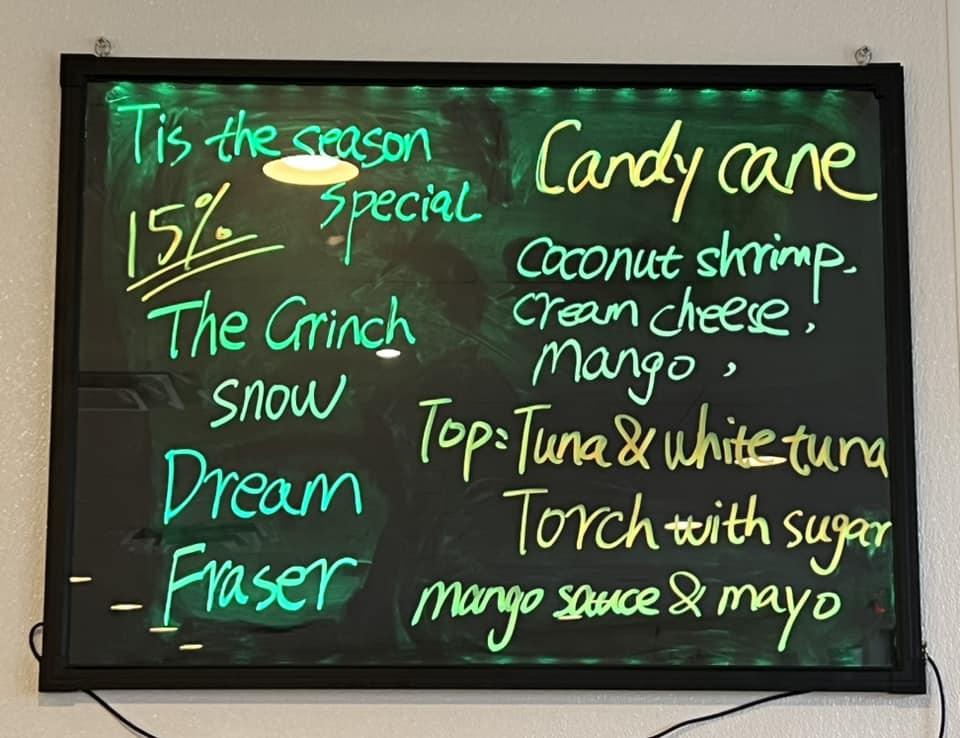 Tis the season
special
15%
The Grinch
snow
Dream
Fraser
Candy cane
coconut shrimp,
cream cheese,
mango,
Top: Tuna & white tuna
Torch with sugar
mango sauce & mayo